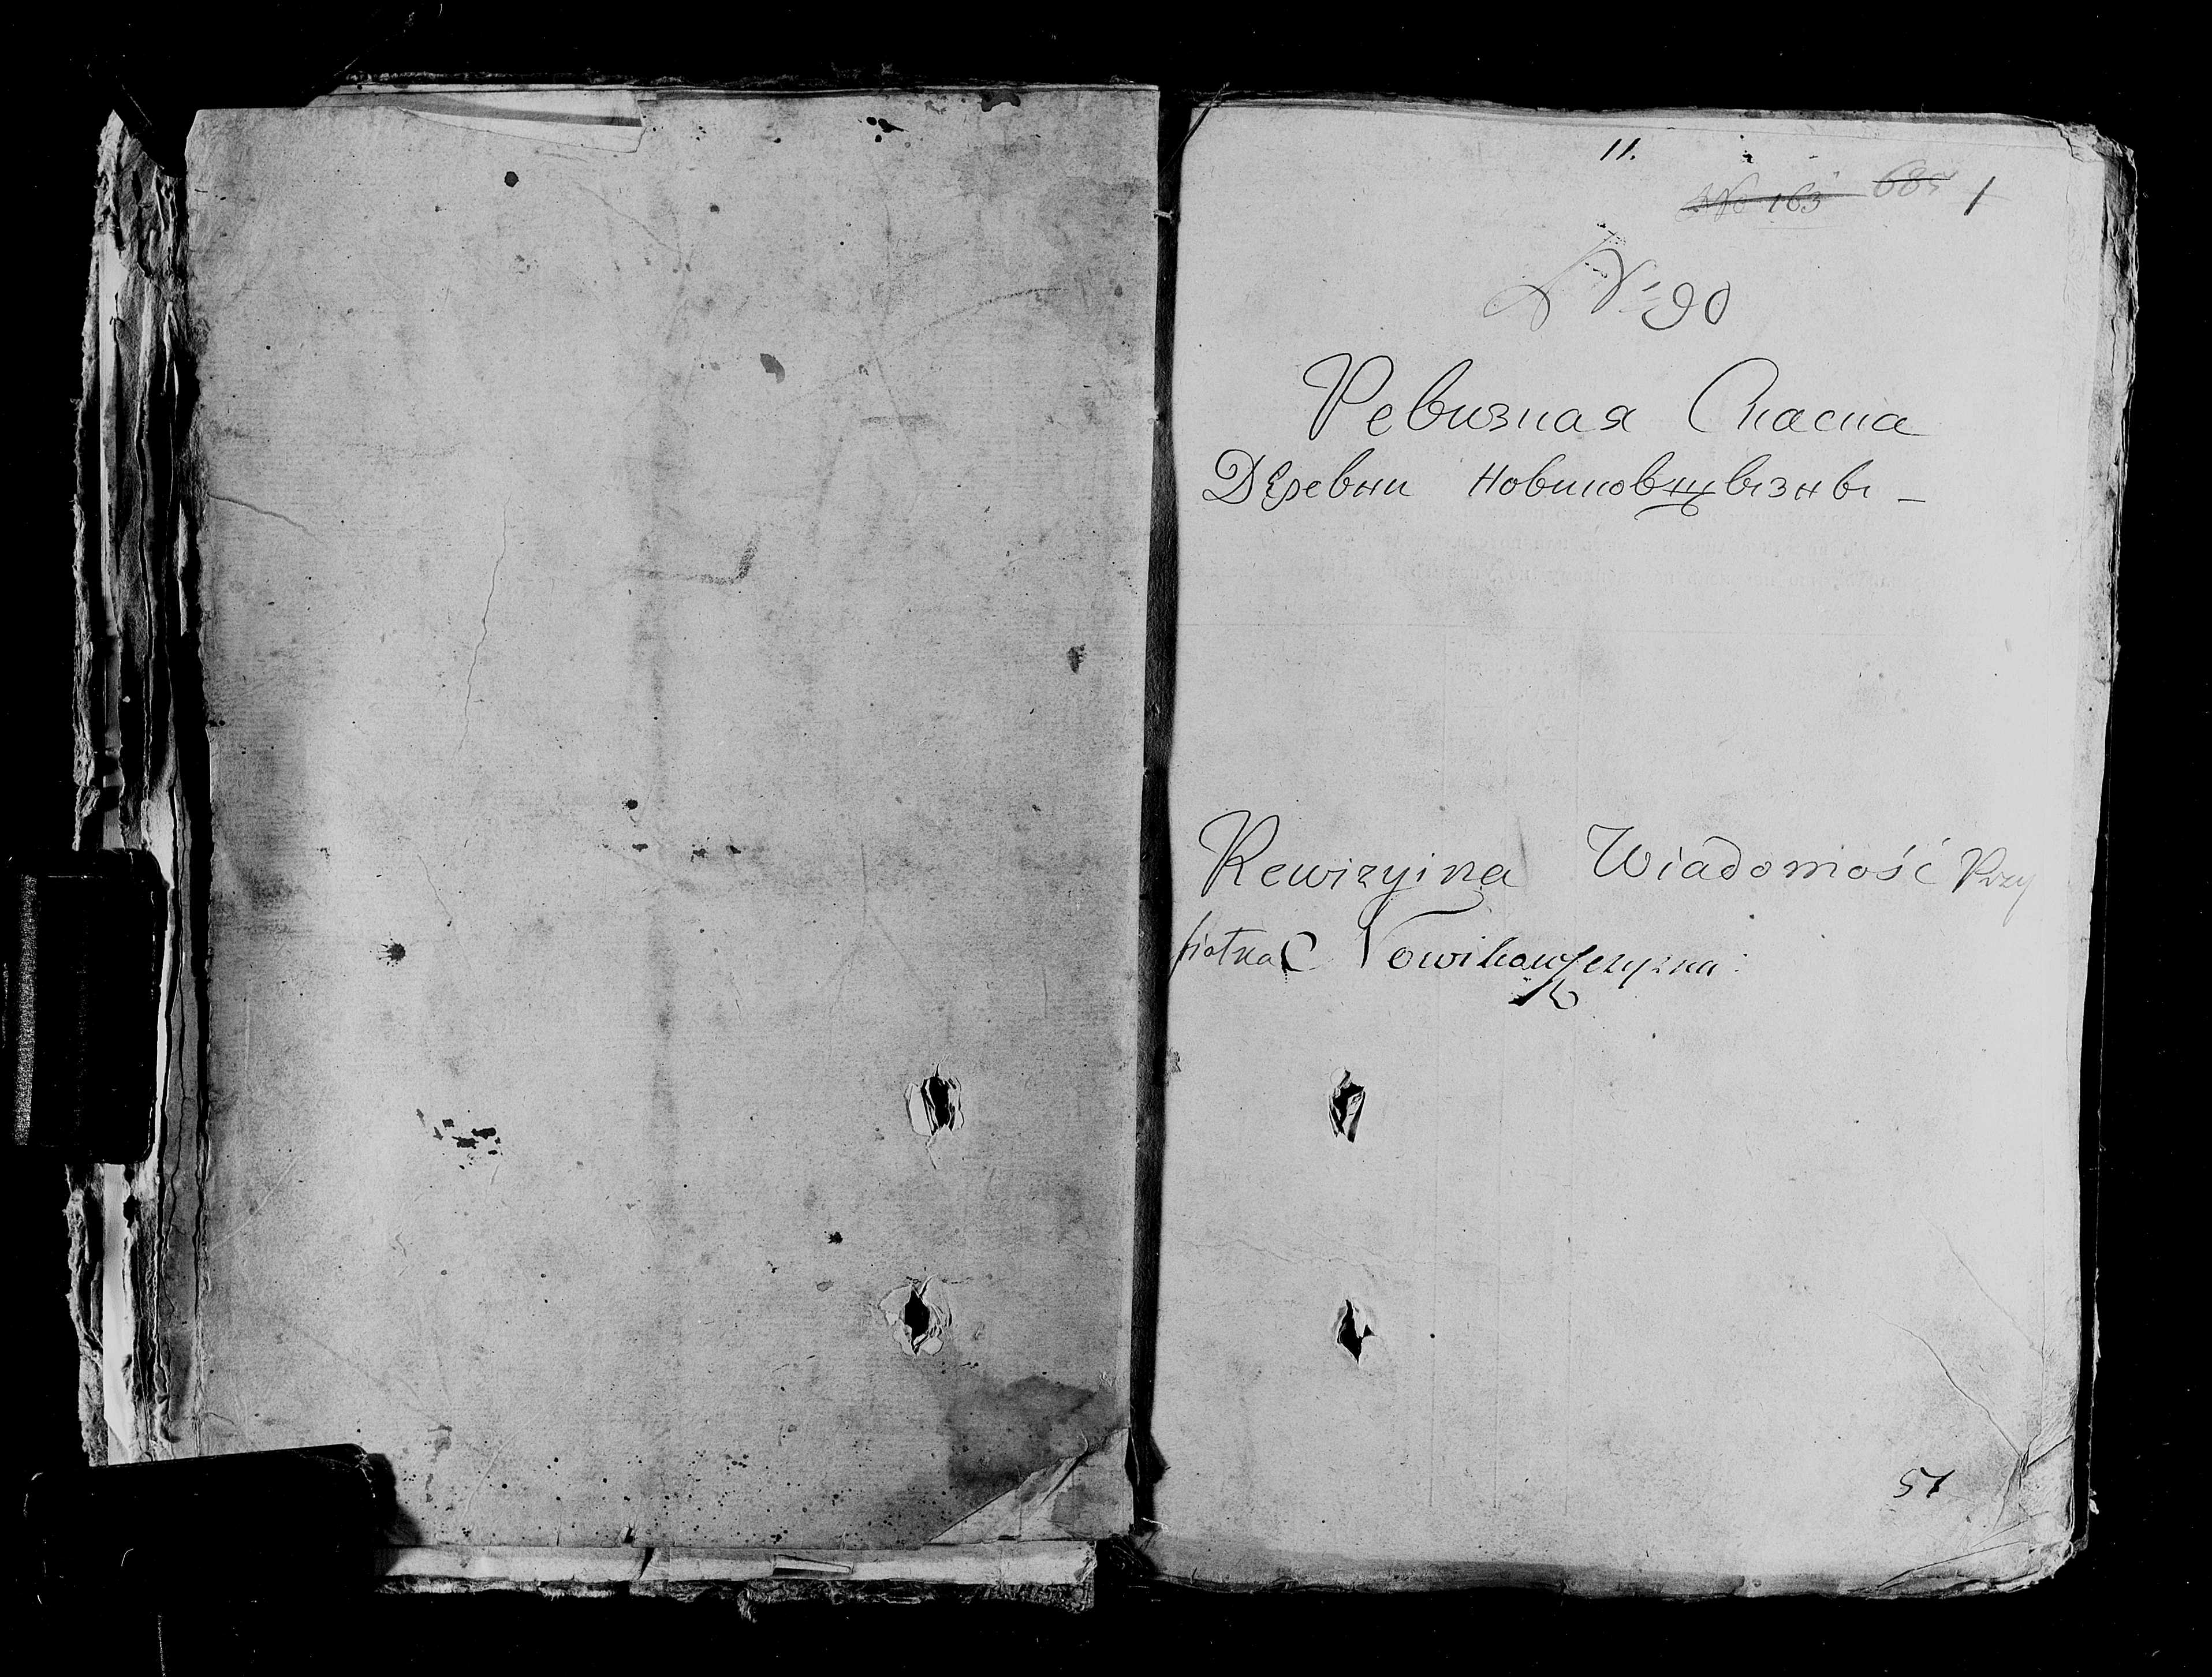 11.
№ 163 685 1
№ 90
Ревизная Сказка
Деревни Новиковщызны –
Rewizyina Wiadomość Przy
Nowikowszczyzna:
51